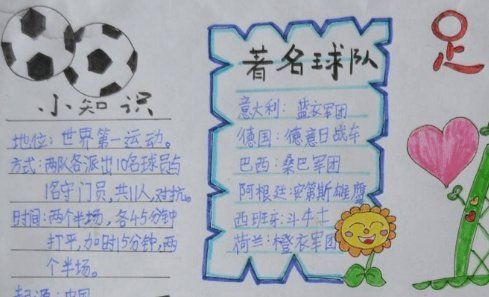 小知识
地位:世界第一运动。
方式:两队各派出10名球员与
1名守门员,共11人,对抗。
时间:两个半场,各45分钟
打平,加时15分钟,两
个半场。
起源:中国
著名球队
意大利:蓝衣军团
德国:德意日战车
巴西:桑巴军团
阿根廷:安第斯雄鹰
西班牙:斗牛士
荷兰:橙衣军团
足